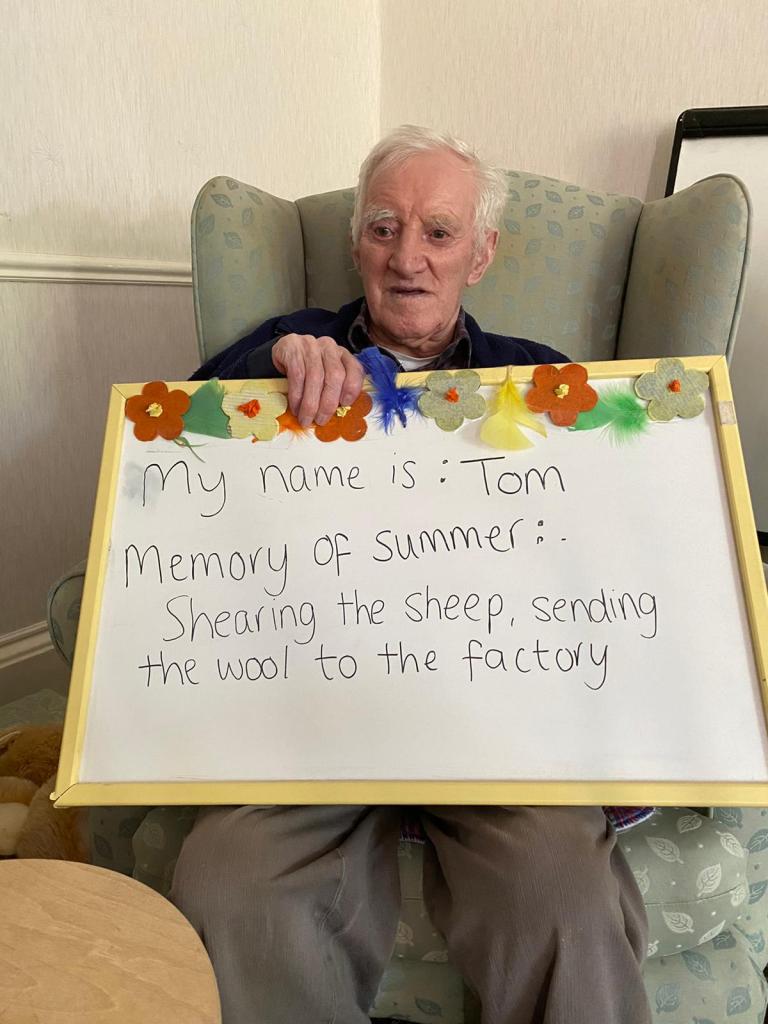 My name is : Tom
Memory of summer : .
Shearing the sheep, sending
the wool to the factory